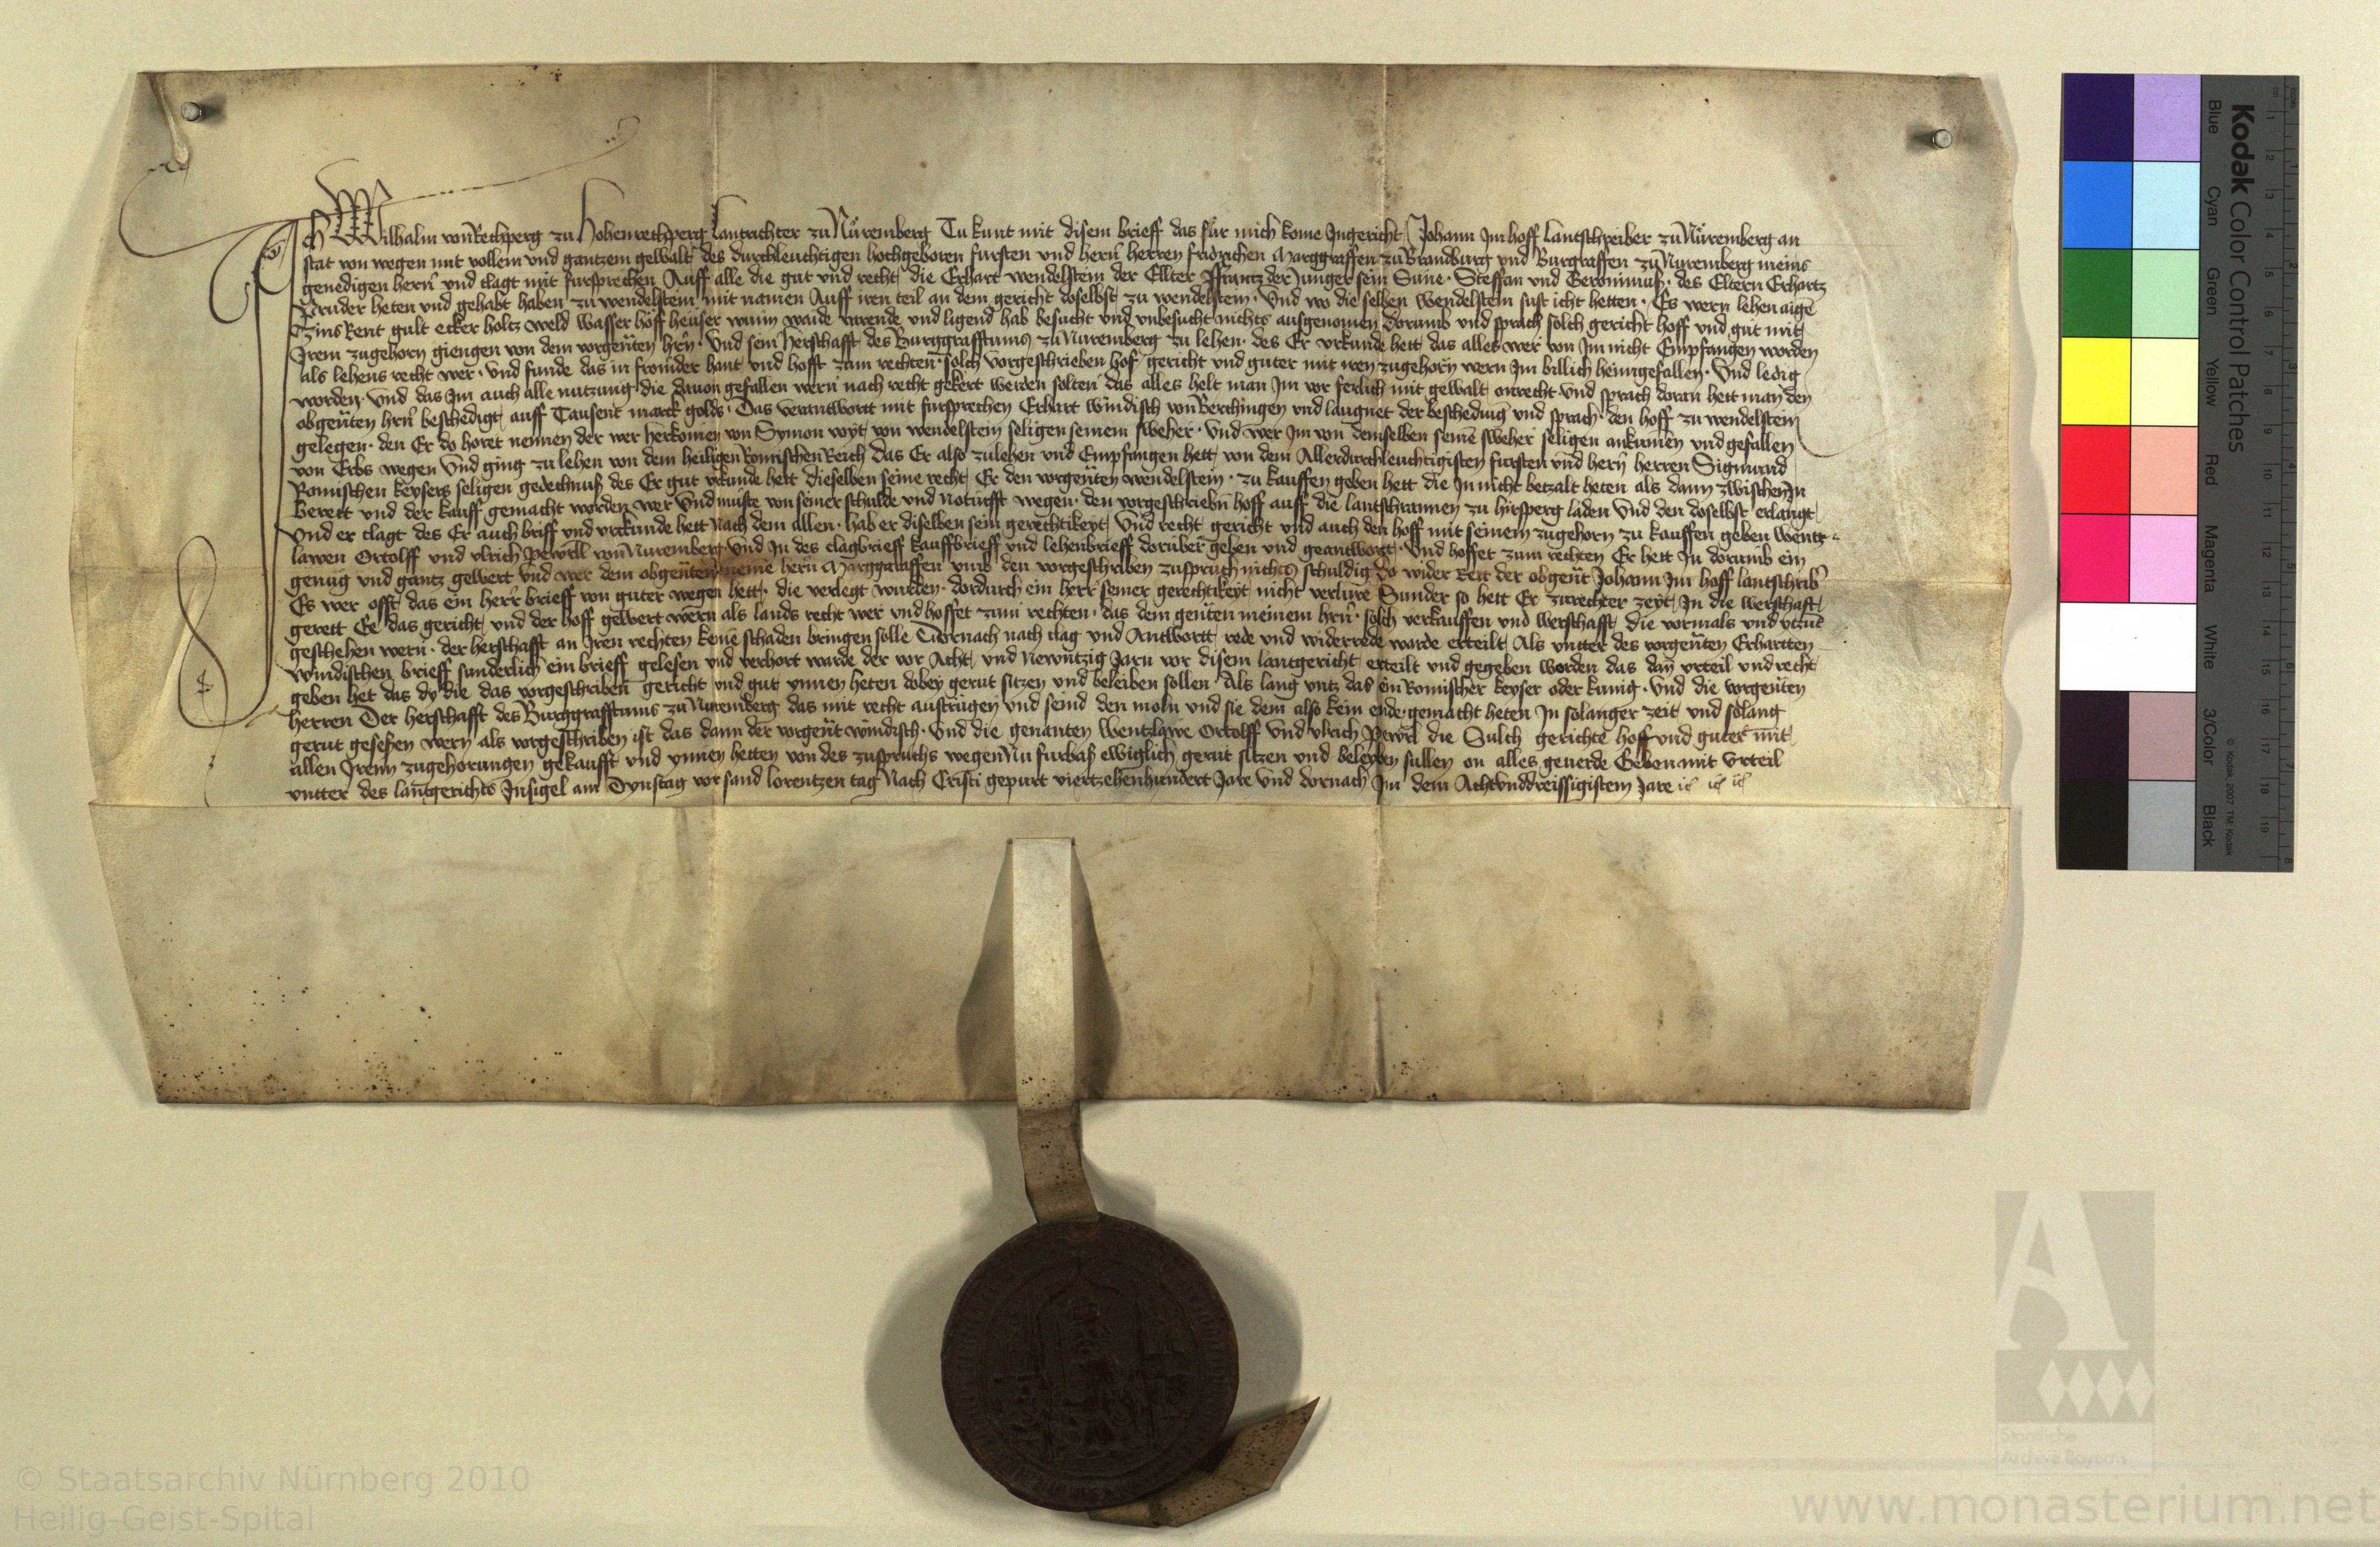 Ich Wilhalm von Rechperg zu Hohenrechperg Lantrichter zu Nüremberg Tu kunt mit disem brieff das für mich kome Ingericht Johann Im hoff Lantschreiber zu Nüremberg an
stat von wegen mit vollem und gantzem gewalt des durchleuchtigen hochgeboren fursten und hern̄ herren fridrichen Marggraffen zu Brandburg und Burgraffen zu Nuremberg meins
genedigen hern̄ und clagt mit fursprechen Auff alle die gut und recht die Erhart wendelstein der Ellter Frantz der Junger sein Sune · Steffan und Geronimuß · des Eltern Erhartz
Bruder heten und gehabt haben zu wendelstein mit namen Auff iren teil an dem gericht doselbst zu wendelstein · Und wo die selben wendelstein sust icht hetten · Es wern lehen aigē
Tzins Rent gult ecker holtz weld wasser höff heüser wunn waide varende und ligend hab besucht und unbesucht nichts ausgenomen dorumb und sprach solch gericht hoff und gut mit
Irem zugehorn giengen von dem vorgen̄ten hrn̄ · Und sein herschafft des Burggrafftums zu Nuremberg zu lehen · des Er urkunde hett das alles wer von Im nicht Empfangen worden
als lehens recht wer · und funde das in fromder hant und hofft zum rechten solch vorgeschrieben hof gericht und guter mit iren zugehörn wern Im billich heimgefallen · Und ledig
worden · und das Im auch alle nutzung die davon gefallen wern nach recht gekert werden solten das alles helt man Im vor ferlich mit gewalt onrecht und sprach doran hett man den
obgen̄ten hrn̄ beschedigt auff Tausent marck golds · Das verantwortt mit fursprechen Erhart windisch von Berchingen und laugnet der beschedung und sprach · den hoff zu wendelstein
gelegen · den Er do horet nennen der wer herkomen von Symon voyt von wendelstein seligen seinem sweher · Und wer Im von demselben seinē sweher seligen ankumen und gefallen
von Erbs wegen Und ging zu lehen von dem heiligen Romischen Reich Das Er also zulehen und Empfangen hett von dem Allerdurchleuchtigisten fursten und hern̄ herren Sigmund
Romischen keysers seligen gedechtnuß des Er gut urkunde hett dieselben seine recht Er den vorgen̄ten wendelstein · zu kauffen geben hett die In nicht betzalt heten als dann zwischen In
Berett und der kauff gemacht worden wer Und muste von seiner schulde und notturfft wegen · den vorgeschriebn̄ hoff auff die lantschrannen zu hirsperg laden Und den doselbst erlangt
Und er clagt des Er auch briff und urkunde hett Nach dem allen · hab er diselben sein gerechtikeyt Und recht gericht und auch den hoff mit seinem zugehorn zu kauffen geben wentz
lawen Ortolff und Ulrich Pewrll von Nuremberg Und In des clagbrieff kauffbrieff und lehenbrieff dorüber geben und geantwort · Und hoffet zum rechten Er hett In dorumb ein
genug und gantz gewert Und wer dem obgen̄ten meinē hern̄ Marggraffen umb den vorgeschriben zuspruch nichts schuldig Do wider Rett der obgen̄t Johann Im hoff lantschrib
Es wer offt das ein herr brieff von guter wegen hett · die verlegt wurden · dordurch ein herr seiner gerechtikeyt nicht verlure Sunder so hett Er zurechter zeyt In die werschaft
gerett Ee das gericht und der hoff gewert wern als lands recht wer und hoffet zum rechten · das dem gen̄ten meinem hrn̄ · solch verkauffen und werschafft die vormals und
geschehen wern · der herschafft an Iren rechten keinē schaden bringen solle Dornach nach clag und Antwortt rede und widerrede warde erteilt Als untter des vorgen̄ten Erhartten
windischen brieff sunderlich ein brieff gelesen und verhort warde der vor Acht und Newntzig Jarn vor disem lantgericht erteilt und gegeben worden das dan̄ urteil und recht
geben het das dy die das vorgeschriben gericht und gut ynnen heten dobey gerut sitzen und beleiben sollen Als lang untz das ein Romischer keyser oder kunig · Und die vorgen̄ten
herren Der herschafft des Burggrafftums zu Nuremberg das mit recht austrugen und seind den moln und sie dem also kein ende gemacht heten In solanger zeit und solang
gerut gesessen wern als vorgeschriben ist das dann der vorgen̄t windisch · Und die genanten Wentzlawe Ortolff Und Ulrich Pewrl die Sulch gerichte hoff und guter mit
allen Iren zugehorungen gekaufft und ynnen hetten von des zuspruchs wegen Nu furbaß ewiglich gerut sitzen und beleyben sullen on alles geuerde Geben mit Urteil
untter des lan̄tgerichts Insigel am Dynstag vor sand lorentzen tag Nach Cristi gepurt viertzehenhundert Jare und dornach Im dem Achtunddreissigistem Jare
Kodak Color Control Patches
Blue Cyan Green Yellow Red Magenta White 3/Color Black
© Kodak, 2007 TM: Kodak
© Staatsarchiv Nürnberg 2010
Heilig-Geist-Spital
Staatliche
Archive Bayerns
www.monasterium.net